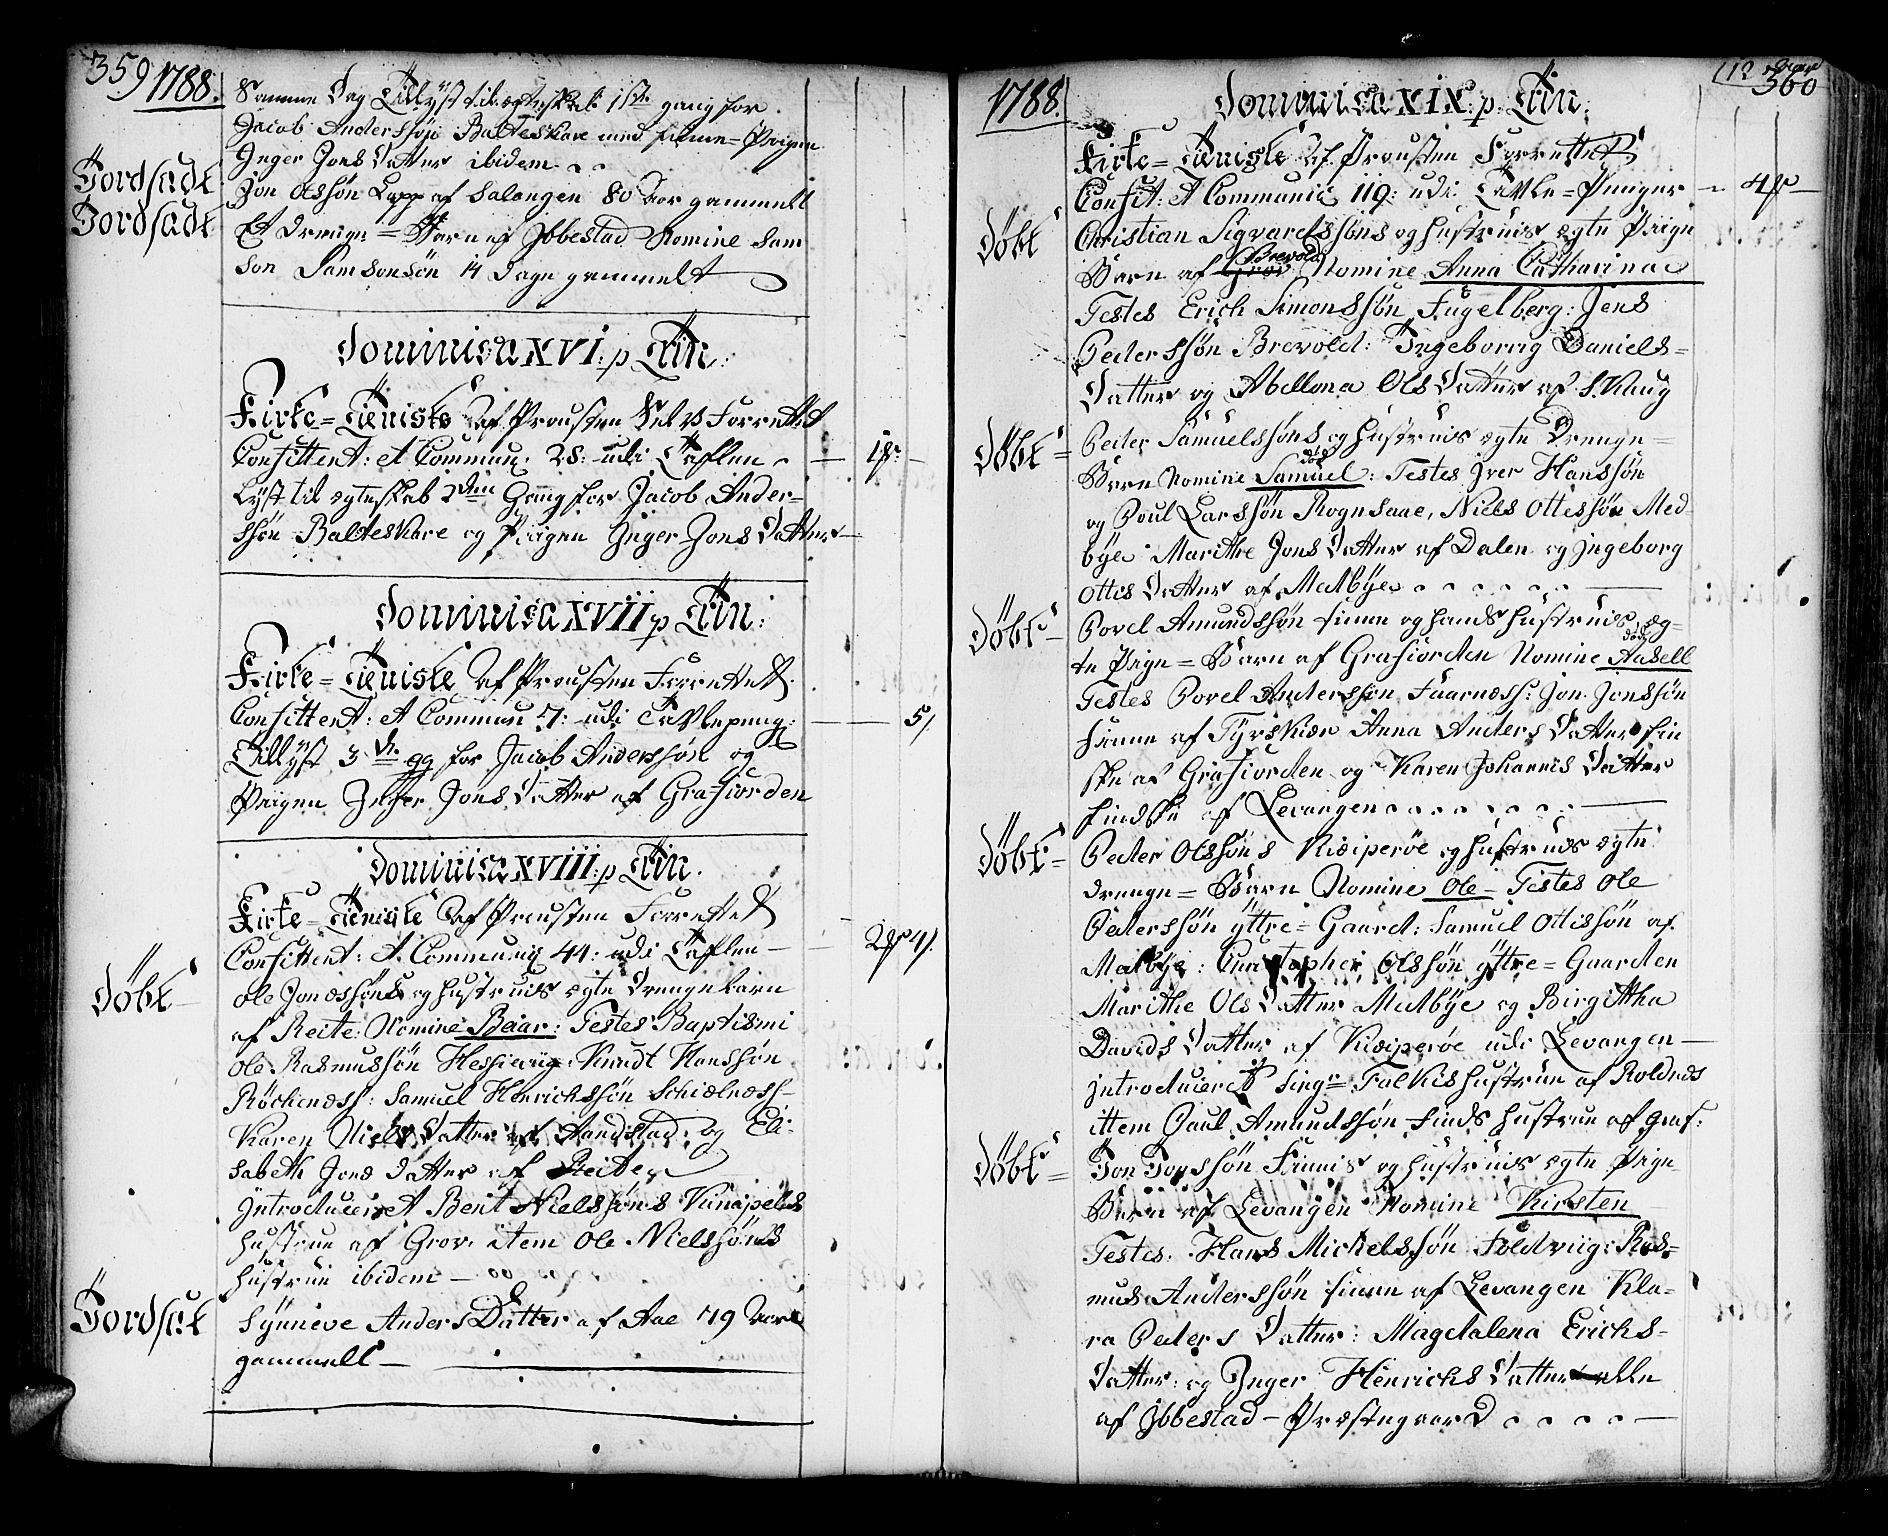 359 1788.
Samme Dag Tillyst til ægteskab 1ste gang for
Jacob Anderssøn Balteskare med Pigen
Inger Jons Datter ibidem
Jordfæstet Jon Olssøn Lapp af Salangen 80 Aar gammell
Jordfæstet Et Drenge=Barn af Ibbestad Nomine Sam
son Samsonsøn 14 dage gammelt
Dominica XVI: p Trin:
Kirke=Tieniste af Prousten Selv Forrettet
Confittent: et Commun: 28: udi Taflen
Lyst til ægteskab 2den Gang for Jacob Ander=
ssøn Balteskare og Piigen Inger Jons Datter
Dominica XVII p Trin:
Kirke=Tieniste af Prousten Forrettet
Confittent: et Commun 7: udi Tavlepeng: 5
Tillyst 3die gg for Jacob Anderssøn og
Piigen Inger Jons Datter af Grafiorden
Dominica XVIII: p Trin.
Kirke=Tieniste af Prousten Forrettet
Confittent: et Communic 44: udi Taflen
Døbt Ole Jonssøns og hustrues ægte Drengebarn
af Reite: Nomine Beiar: Testes Baptismi
Ole Rasmussøn Knudt Hanssøn
Røckenæss: Samuel Henrichssøn
Karen Niels Datter af Aandstad og Eli=
sabeth Jons Datter af Reite
Introduceret Bent Nielssøns
hustrue af Grov item Ole Nielssøns
hustrue ibidem
Jordfæstet Synneve Anders Datter af Aae 79 Aar
gammell
1788. 360
Dominica XIX: p. Trin:
Kirke=Tieniste af Prousten Forrettet
Confit: et Communic 119: udi Tavle=Penger
Døbt Christian Sigvardssøns og hustrues ægte Piige
Barn af Brevold Nomine Anna Catharina
Testes Erich Simonssøn Fugelberg: Jens
Pederssøn Brevold: Ingeborrig Daniels=
Datter og Abellona Ols Datter af
Døbt= Peder Samuelssøns og hustrues ægte Drenge=
død
Barn Nomine Samuel: Testes Iver Hanssøn
og Poul Larssøn Rognsaae, Niels Ottessøn Med
bye Marithe Jons Datter af Dalen og Ingeborg
Ottes Datter af Medbye
Døbt= Povel Amundssøn finne og hands hustrues æg=
død
te Piige=Barn af Grafiorden Nomine
Testes Povel Anderssøn Faarnæss: Jon Jonssøn
finne af Anna Anders Datter fin
ske af Grafiorden og Karen Johannis Datter
findske af Levangen
Døbt= Peder Olssøns og hustrues ægte
Drenge=Barn Nomine Ole Testes Ole
Pederssøn yttre=Gaard: Samuel Ottessøn af
Medbye: Christopher Olssøn yttre=Gaarden
Marithe Ols Datter Medbye og Birgitha
Davids Datter af udi Levangen
Introduceret Hustrue af Roldnes
ittem Paul Amundssøn Finds hustrue af Graf:
Døbt= Jon Jonssøn Finnes og hustrues ægte Piige
Barn af Levangen Nomine Kirsten
Testes: Hans Mickelssøn Foldviig: Ras=
mus Anderssøn finne af Levangen Kla=
ra Peders Datter: Magdalena Erichs=
Datter: og Inger Henrichs Datter alle
af Ibbestad Præstegaard